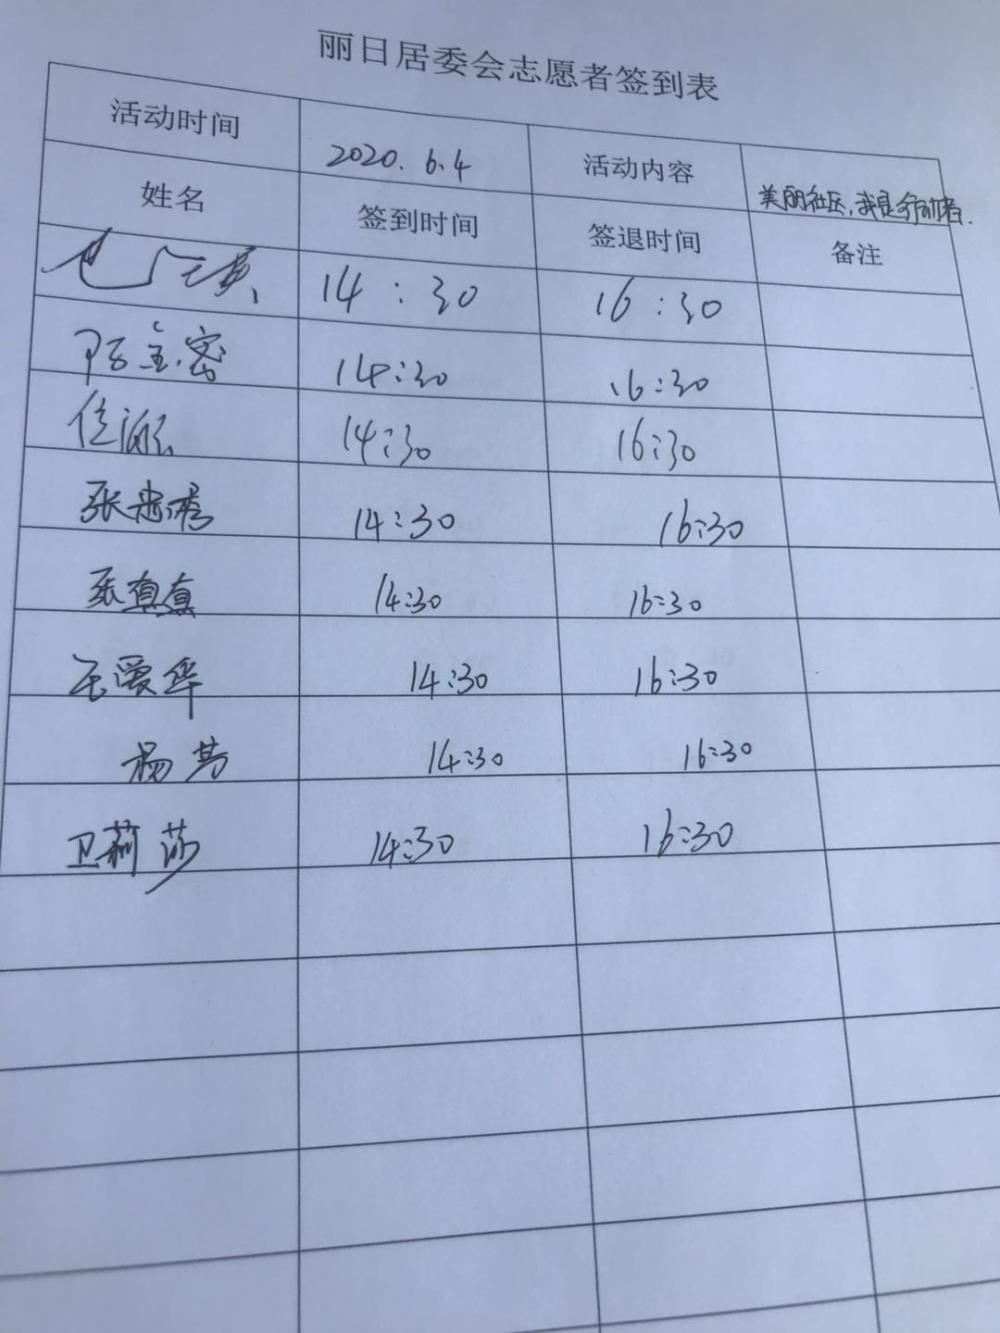 丽日居委会志愿者签到表
活动时间 2020.6.4 活动内容 美丽社区,我是行动者.
姓名 签到时间 签退时间 备注
14:30 16:30
14:30 16:30
14:30 16:30
张忠秀 14:30 16:30
张真真 14:30 16:30
王爱华 14:30 16:30
杨芳 14:30 16:30
卫莉莎 14:30 16:30